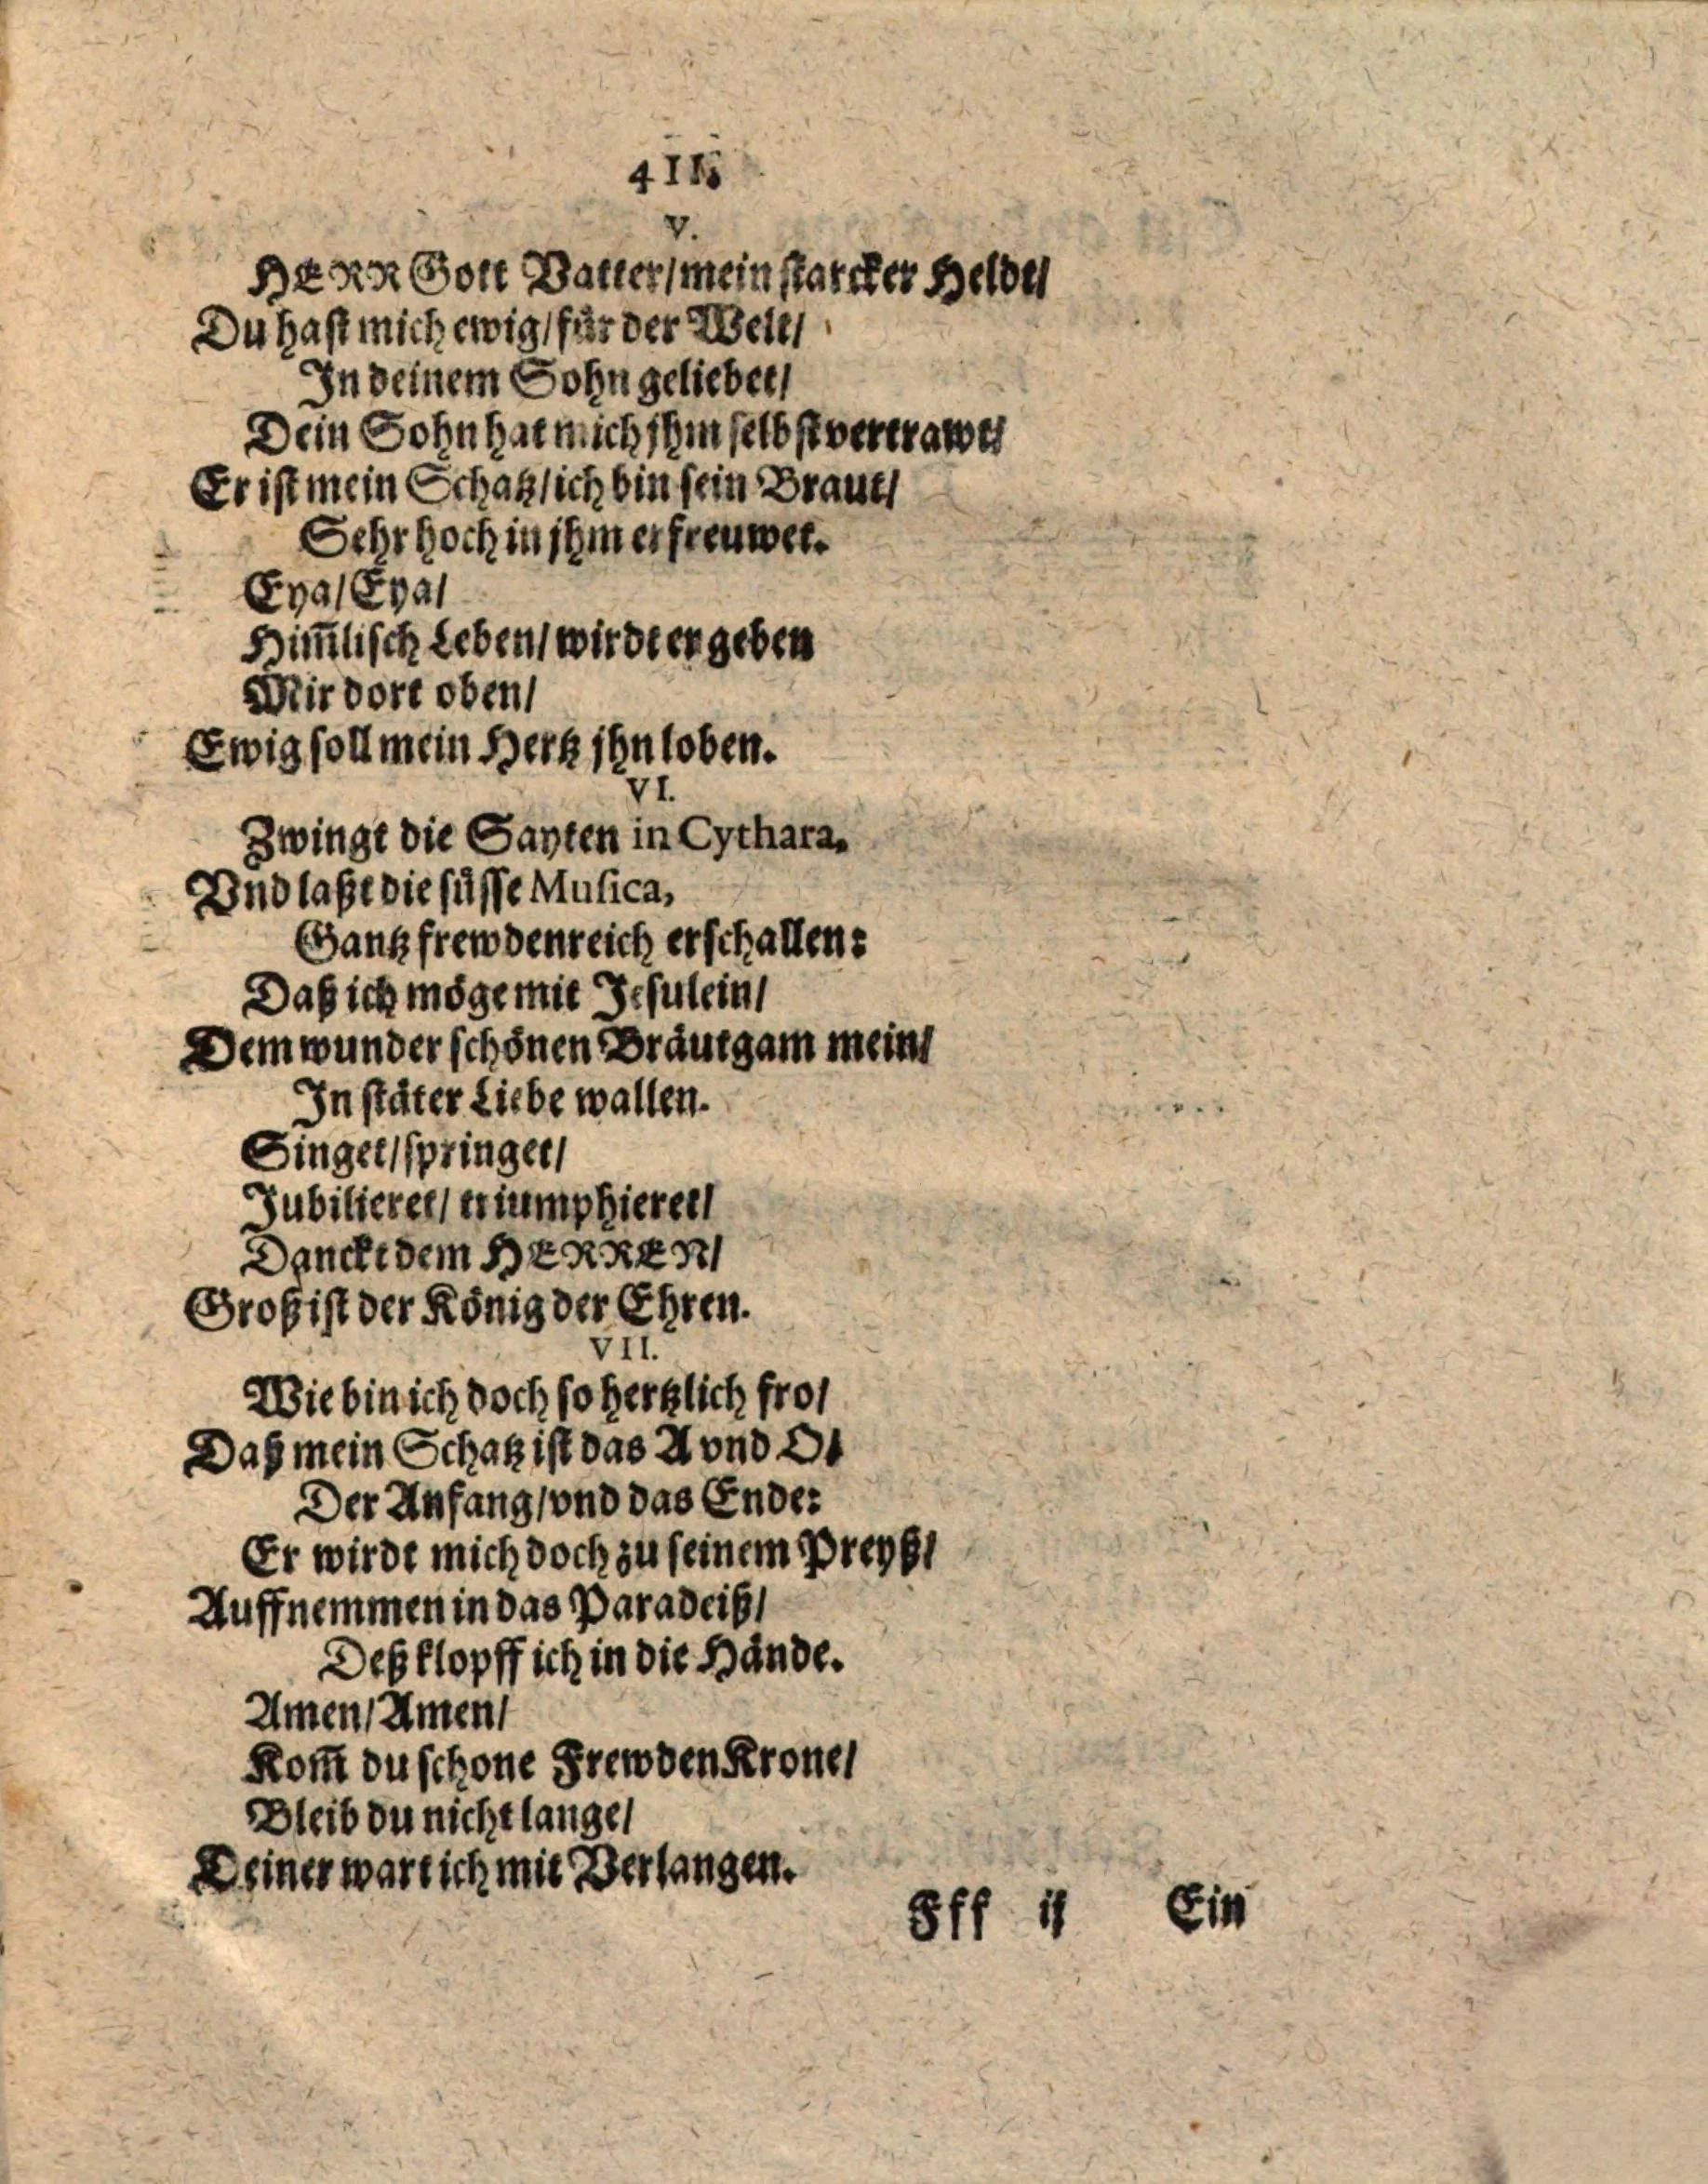 411
V.
HERR Gott Vatter/ mein starcker Heldt/
Du hast mich ewig/ für der Welt/
In deinem Sohn geliebet/
Dein Sohn hat mich jhm selbst vertrawt/
Er ist mein Schatz/ ich bin sein Braut/
Sehr hoch in jhm erfreuwet.
Eya/ Eya/
Him̃lisch Leben/ wirdt er geben
Mir dort oben/
Ewig soll mein Hertz jhn loben.
VI.
Zwingt die Sayten in Cythara,
Vnd laßt die süsse Musica,
Gantz frewdenreich erschallen:
Daß ich möge mit Jesulein/
Dem wunder schönen Bräutgam mein/
In stäter Liebe wallen.
Singet/ springet/
Jubilieret/ triumphieret/
Danckt dem HERREN/
Groß ist der König der Ehren.
VII.
Wie bin ich doch so hertzlich fro/
Daß mein Schatz ist das A vnd O/
Der Anfang/ vnd das Ende:
Er wirdt mich doch zu seinem Preyß/
Auffnemmen in das Paradeiß/
Deß klopff ich in die Hände.
Amen/ Amen/
Kom̃ du schone Frewden Krone/
Bleib du nicht lange/
Deiner wart ich mit Verlangen.
Fff ij Ein